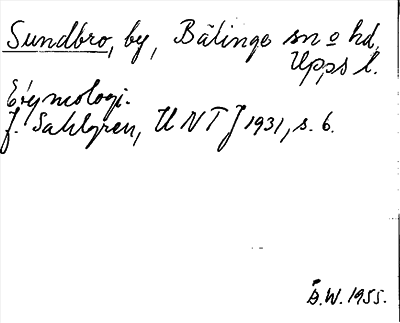 Sundbro, by, Bälinge sn o hd,
Upps l.
Etymologi.
J. Sahlgren, UNT J 1931, s. 6.
Å.W. 1955.